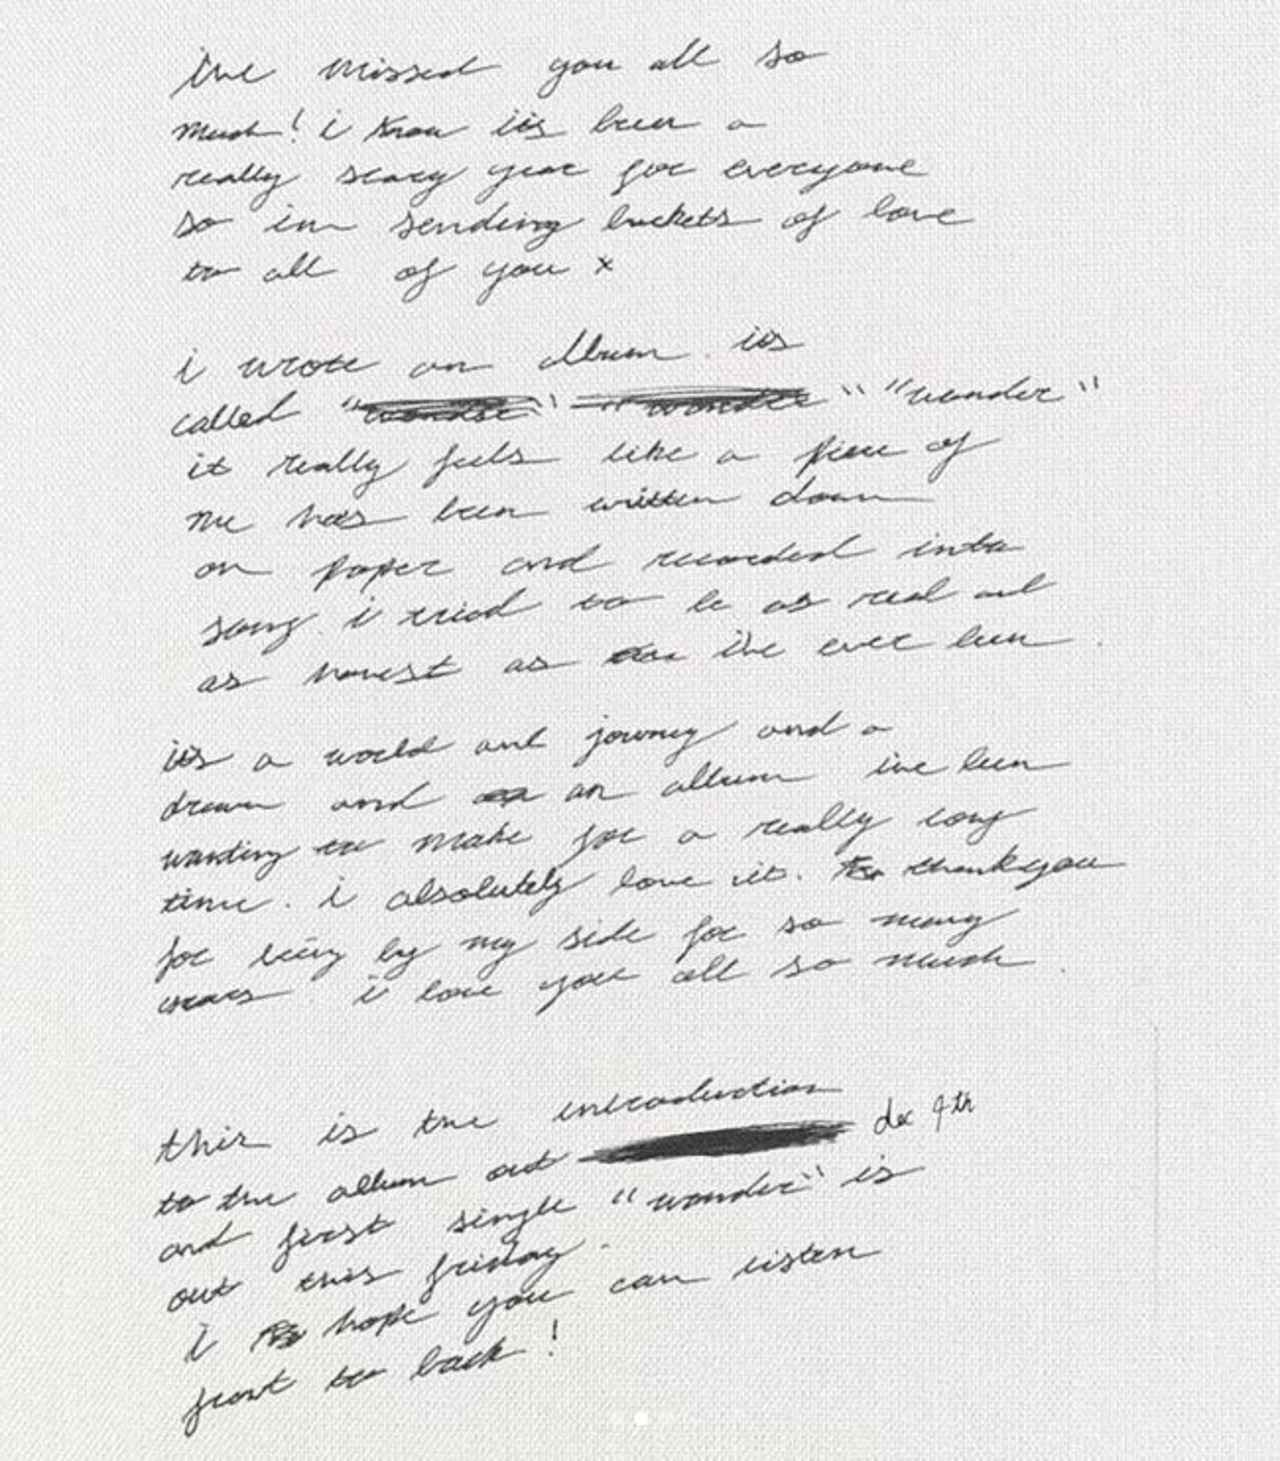 ive missed you all so
much! i know its been a
really scary year for everyone
so im sending buckets of love
to all of you x
i wrote an album. its
called "wonder" "wonder" "wonder"
it really feels like a piece of
me has been written down
on paper and recorded into
song. i tried to be as real and
as honest as ive ever been.
its a world and journey and a
dream and an album ive been
wanting to make for a really long
time. i absolutely love it. thank you
for being by my side for so many
years. i love you all so much.
this is the introduction
to the album out dec 4th
and first single "wonder" is
out this friday.
i hope you can listen
front to back!